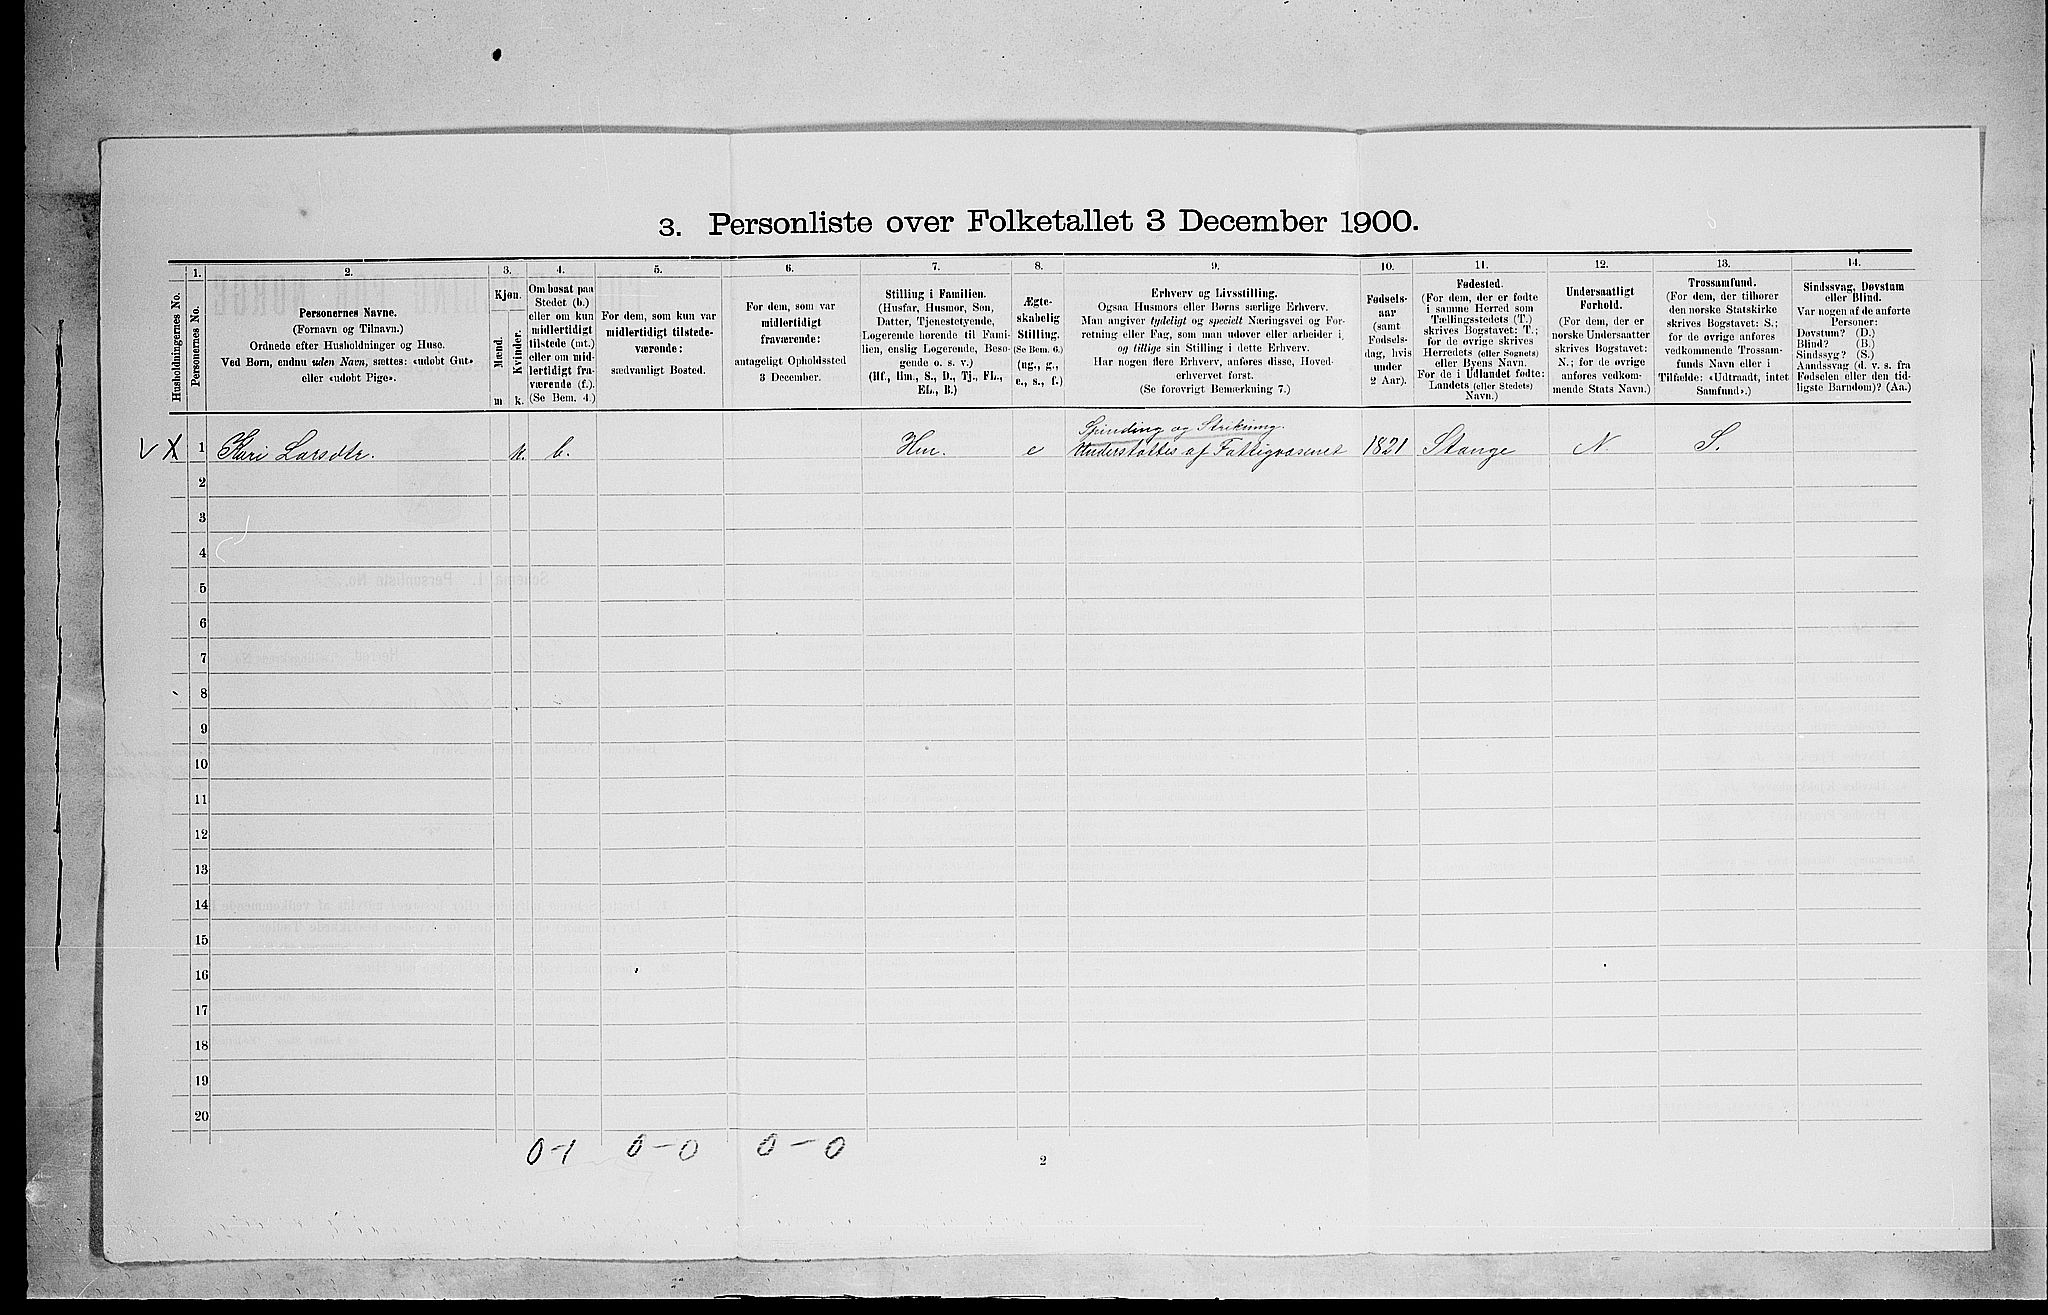 3. Personliste over Folketallet 3 December 1900.
Husholdningernes No.
1.
Personernes No.
2.
Personernes Navne.
(Fornavn og Tilnavn.)
Ordnede efter Husholdninger og Huse.
Ved Børn, endnu uden Navn, sættes: «udøbt Gut»
eller «udøbt Pige».
3.
Kjøn.
Mænd.
Kvinder.
m
k.
4.
Om bosat paa
Stedet (b.)
eller om kun
midlertidigt
tilstede (mt.)
eller om mid-
lertidigt fra-
værende (f.).
(Se Bem. 4.)
5.
For dem, som kun var
midlertidigt tilstede-
værende:
sædvanligt Bosted.
6.
For dem, som var
midlertidigt
fraværende:
antageligt Opholdssted
3 December.
7.
Stilling i Familien.
(Husfar, Husmor, Søn,
Datter, Tjenestetyende,
Logerende hørende til Fami-
lien, enslig Logerende, Besø-
gende o. s. v.)
(Hf., Hm., S., D., Tj., FL.,
EL., B.)
8.
Ægte-
skabelig
Stilling.
(Se Bem. 6.)
(ug., g.,
e., s., f.)
9.
Erhverv og Livsstilling.
Ogsaa Husmors eller Børns særlige Erhverv.
Man angiver tydeligt og specielt Næringsvei og For-
retning eller Fag, som man udøver eller arbeider i,
og tillige sin Stilling i dette Erhverv.
Har nogen flere Erhverv, anføres disse, Hoved-
erhvervet først.
(Se forøvrigt Bemærkning 7.)
10.
Fødsels-
aar
(samt
Fødsels-
dag, hvis
under
2 Aar).
11.
Fødested.
(For dem, der er fødte
i samme Herred som
Tællingsstedets (T.)
skrives Bogstavet: T.;
for de øvrige skrives
Herredets (eller Sognets)
eller Byens Navn.
For de i Udlandet fødte:
Landets (eller Stedets)
Navn.)
12.
Undersaatligt
Forhold.
(For dem, der er
norske Undersaatter
skrives Bogstavet:
N.; for de øvrige
anføres vedkom-
mende Stats Navn.)
13.
Trossamfund.
(For dem, der tilhører
den norske Statskirke
skrives Bogstavet: S.;
for de øvrige anføres
vedkommende Trossam-
funds Navn eller i
Tilfælde: «Udtraadt, intet
Samfund».)
14.
Sindssvag, Døvstum
eller Blind.
Var nogen af de anførte
Personer:
Døvstum? (D.)
Blind? (B.)
Sindssyg? (S.)
Aandssvag (d. v. s. fra
Fødselen eller den tid-
ligste Barndom)? (Aa.)
Spinding og Strikning.
V X 1 Kari Larsdtr. k. b. Hm. e Understøttes af Fattigvæsenet 1821 Stange N. S.
2
3
4
5
6
7
8
9
10
11
12
13
14
15
16
17
18
19
20
0-1 0-0 0-0
2